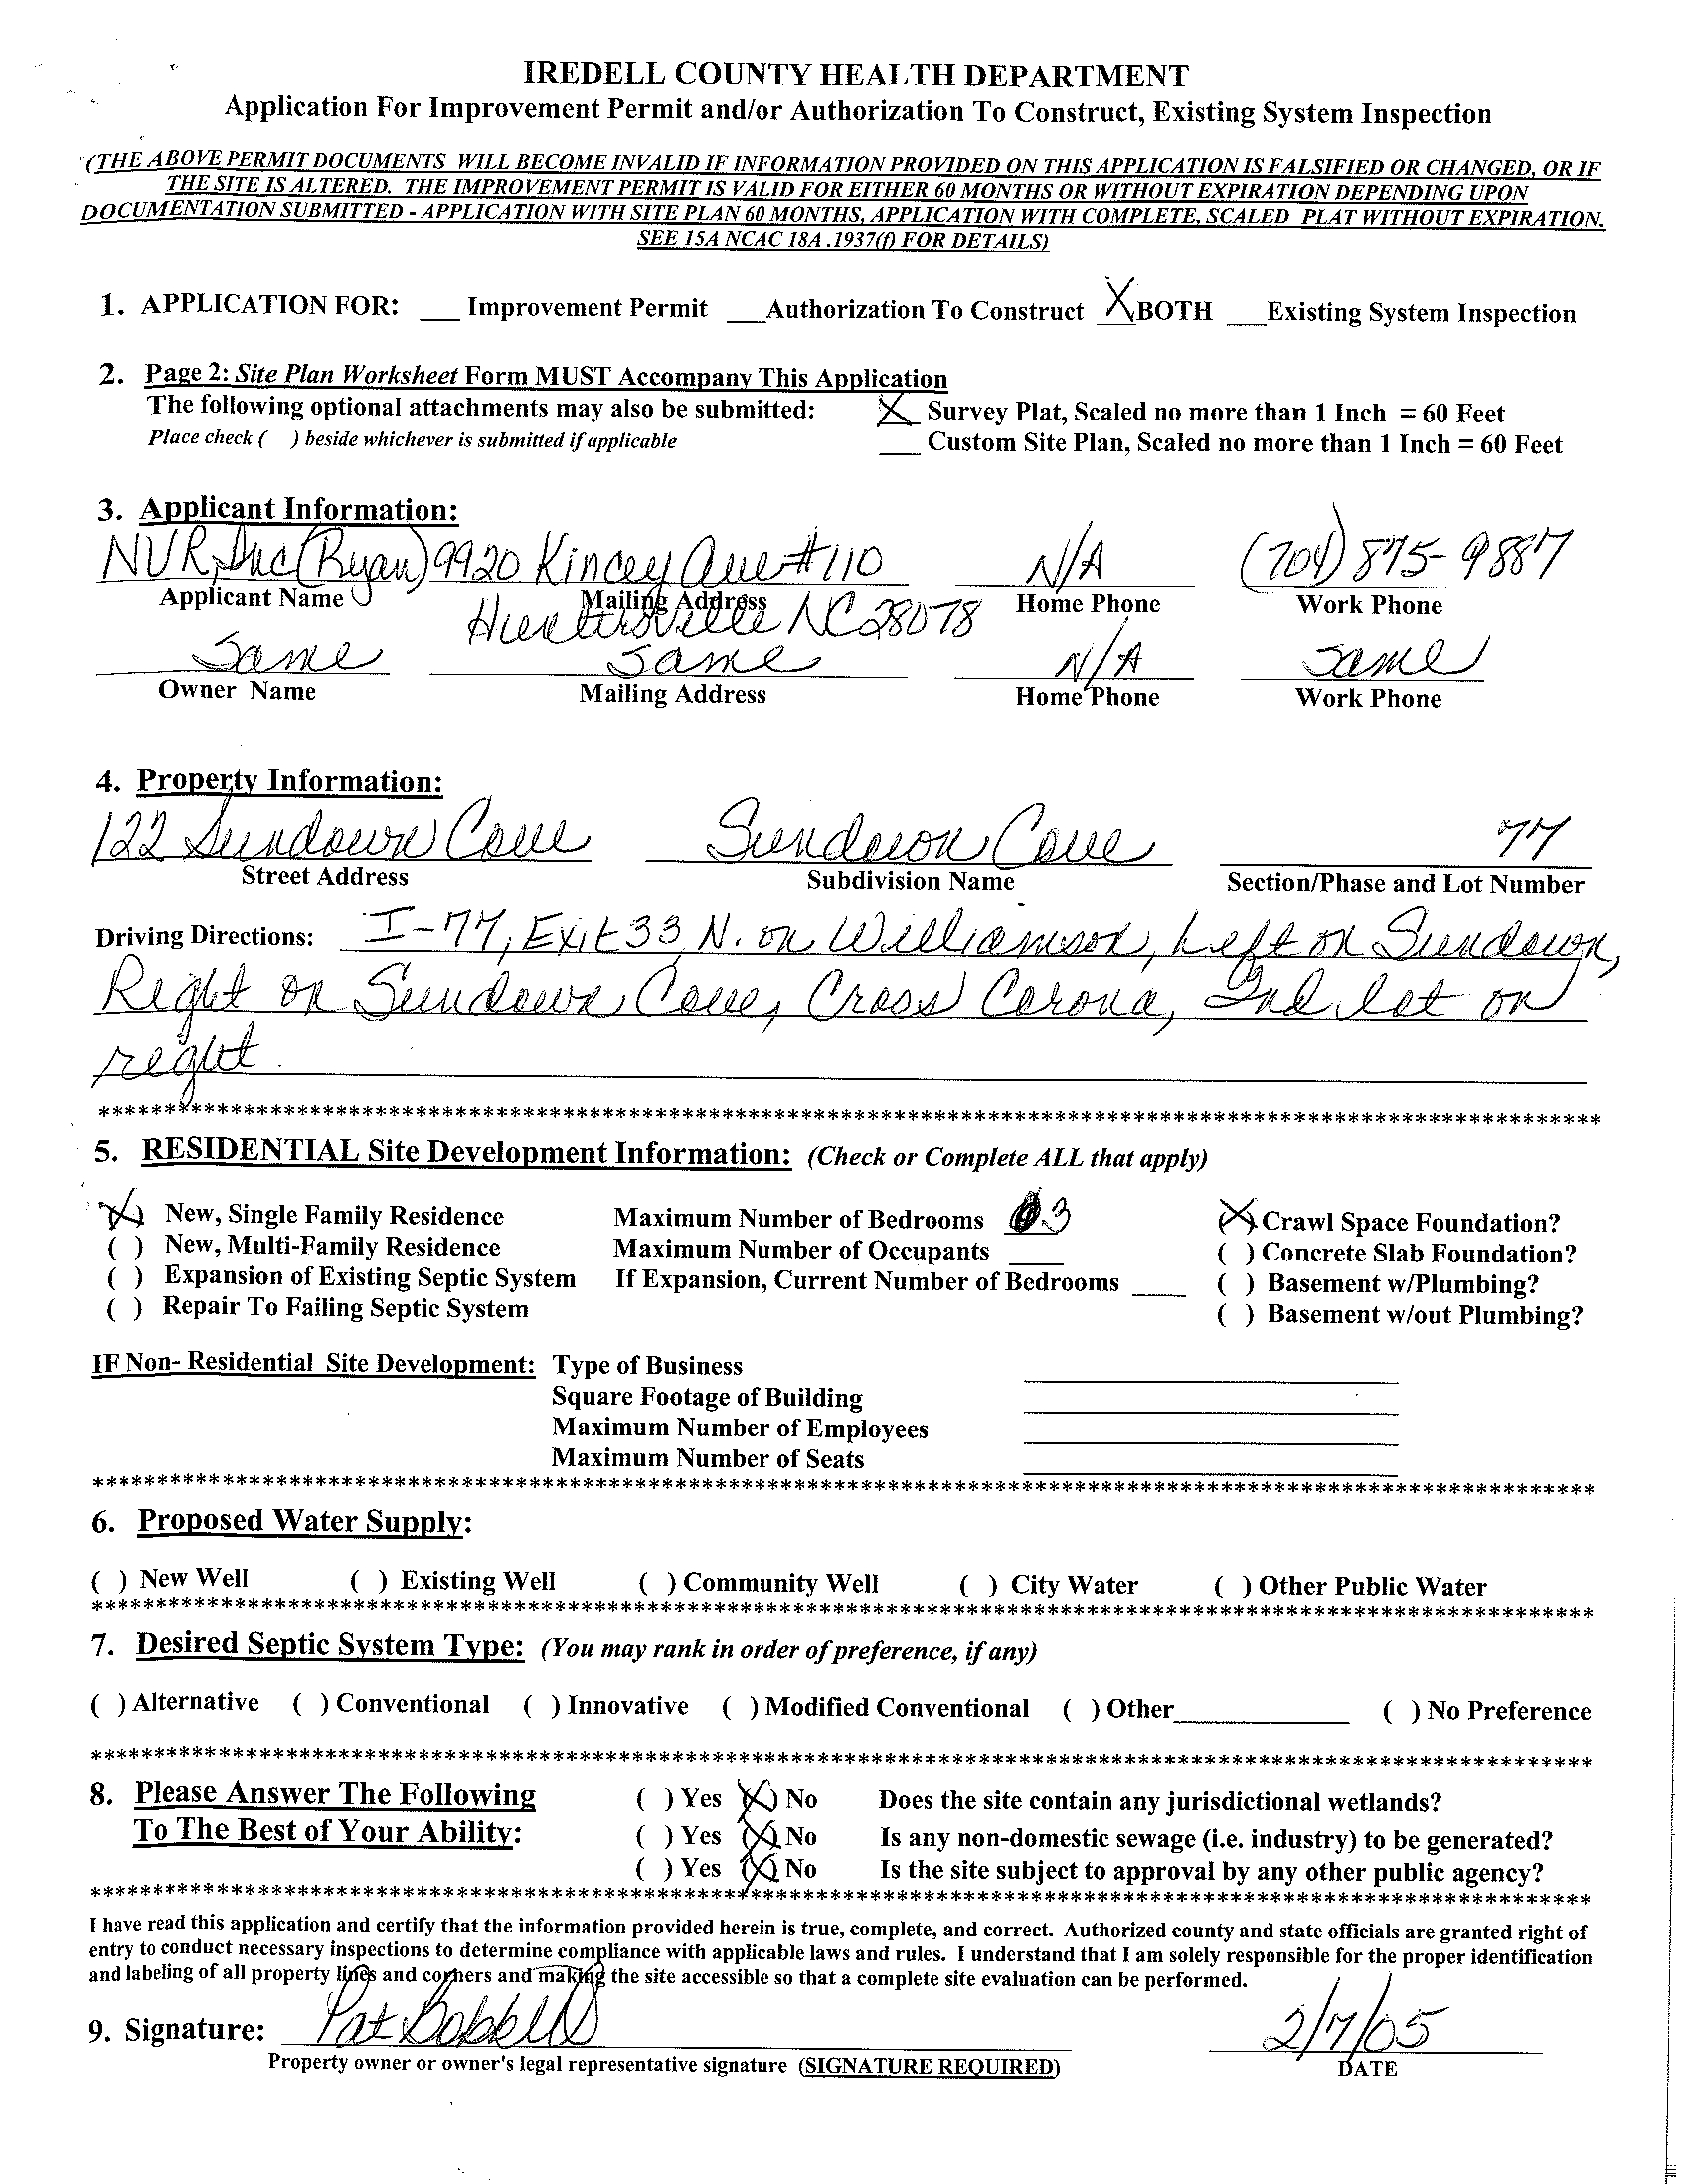 IREDELL COUNTY HEALTH DEPARTMENT
Application For Improvement Permit and/or Authorization To Construct, Existing System Inspection
(THE ABOVE PERMIT DOCUMENTS WILL BECOME INVALID IF INFORMATION PROVIDED ON THIS APPLICATION IS FALSIFIED OR CHANGED, OR IF
THE SITE IS ALTERED. THE IMPROVEMENT PERMIT IS VALID FOR EITHER 60 MONTHS OR WITHOUT EXPIRATION DEPENDING UPON
DOCUMENTATION SUBMITTED - APPLICATION WITH SITE PLAN 60 MONTHS, APPLICATION WITH COMPLETE, SCALED PLAT WITHOUT EXPIRATION.
SEE 15A NCAC 18A .1937(f) FOR DETAILS)
1. APPLICATION FOR: ___ Improvement Permit ___Authorization To Construct X BOTH ___Existing System Inspection
2. Page 2: Site Plan Worksheet Form MUST Accompany This Application
The following optional attachments may also be submitted: X Survey Plat, Scaled no more than 1 Inch = 60 Feet
Place check ( ) beside whichever is submitted if applicable ___ Custom Site Plan, Scaled no more than 1 Inch = 60 Feet
3. Applicant Information:
NVR, Inc (Ryan) 9920 Kincey Ave #110 N/A (704) 875-9887
Applicant Name Mailing Address Home Phone Work Phone
Huntersville NC 28078
Same Same N/A Same
Owner Name Mailing Address Home Phone Work Phone
4. Property Information:
122 Sundown Cove Sundown Cove 77
Street Address Subdivision Name Section/Phase and Lot Number
Driving Directions: I-77, Exit 33 N. on Williamson, Left on Sundown,
Right on Sundown Cove, Cross Corona, 2nd lot on
right.
************************************************************
5. RESIDENTIAL Site Development Information: (Check or Complete ALL that apply)
(X) New, Single Family Residence Maximum Number of Bedrooms 3 (X) Crawl Space Foundation?
( ) New, Multi-Family Residence Maximum Number of Occupants ____ ( ) Concrete Slab Foundation?
( ) Expansion of Existing Septic System If Expansion, Current Number of Bedrooms ____ ( ) Basement w/Plumbing?
( ) Repair To Failing Septic System ( ) Basement w/out Plumbing?
IF Non- Residential Site Development: Type of Business
Square Footage of Building
Maximum Number of Employees
Maximum Number of Seats
************************************************************
6. Proposed Water Supply:
( ) New Well ( ) Existing Well ( ) Community Well ( ) City Water ( ) Other Public Water
************************************************************
7. Desired Septic System Type: (You may rank in order of preference, if any)
( ) Alternative ( ) Conventional ( ) Innovative ( ) Modified Conventional ( ) Other____________ ( ) No Preference
************************************************************
8. Please Answer The Following ( ) Yes (X) No Does the site contain any jurisdictional wetlands?
To The Best of Your Ability: ( ) Yes (X) No Is any non-domestic sewage (i.e. industry) to be generated?
( ) Yes (X) No Is the site subject to approval by any other public agency?
************************************************************
I have read this application and certify that the information provided herein is true, complete, and correct. Authorized county and state officials are granted right of
entry to conduct necessary inspections to determine compliance with applicable laws and rules. I understand that I am solely responsible for the proper identification
and labeling of all property lines and corners and making the site accessible so that a complete site evaluation can be performed.
9. Signature: Pat 2/7/05
Property owner or owner's legal representative signature (SIGNATURE REQUIRED) DATE